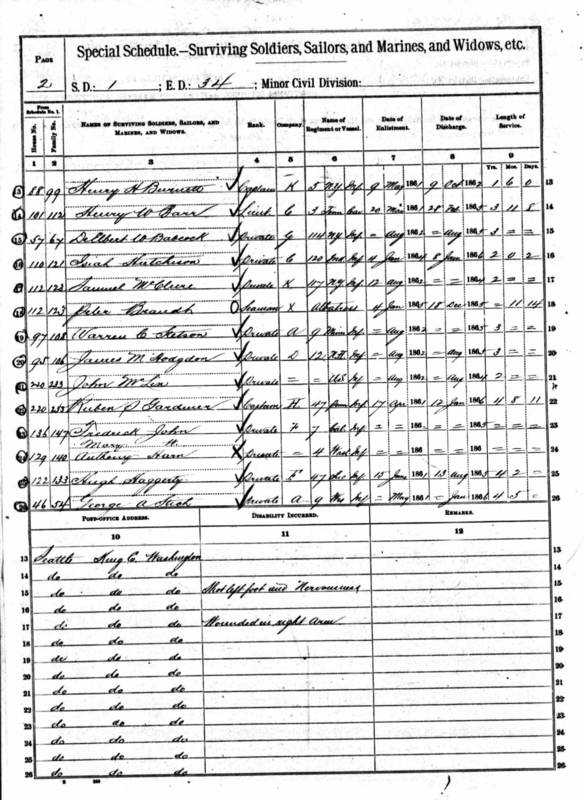 PAGE
2
Special Schedule.—Surviving Soldiers, Sailors, and Marines, and Widows, etc.
S. D.: 1 ; E. D.: 34 ; Minor Civil Division:
From Schedule No. 1.
House No. Family No. NAMES OF SURVIVING SOLDIERS, SAILORS, AND MARINES, AND WIDOWS. Rank. Company. Name of Regiment or Vessel. Date of Enlistment. Date of Discharge. Length of Service.
Yrs. Mos. Days.
1 2 3 4 5 6 7 8 9
13 88 99 Henry H Burnett Captain K 5 N.Y. Inf 9 May 1861 9 Oct 1862 1 6 0 13
14 101 112 Henry W Carr Lieut. C 3 Tenn Cav 20 1861 28 Feb 1865 3 11 8 14
15 57 67 Dellbert W Babcock Private G 114 N.Y. Inf = Aug 1862 = Aug 1865 3 = = 15
16 110 121 Isiah Hutcheson Private C 120 Ind Inf 1864 8 Jan 1866 2 0 2 16
112 123 Samuel McClure Private K 117 N.Y. Inf 12 Aug 186 = = 1864 2 = = 17
112 123 Peter Brandt Seaman X Albatross 4 Jan 1865 18 Dec 1865 = 11 14 18
19 97 108 Warren E Private A 9 Inf = Aug 1862 = = 1865 3 = = 19
20 95 106 James M Hodgdon Private D 12 N.H. Inf = Aug 1862 = Aug 1865 3 = = 20
240 253 John Private = = U.S. Inf = Aug 1862 = Aug 1864 2 = = 21
220 233 Ruben S Gardner Captain H. 47 Inf 17 Apr 1861 12 Jan 1866 4 8 11 22
136 147 Fredrick John Private 7 Inf = = 186 = = 186 = = = 23
Mary H.
129 140 Anthony Horn Private = 4 Inf = = 186 = = 186 = = = 24
122 133 Hugh Haggerty Private E 47 Inf 13 June 1861 13 Aug 1865 4 2 = 25
46 54 George A Private A 9 Wis Inf = May 1861 = Jan 1866 4 5 = 26
POST-OFFICE ADDRESS. DISABILITY INCURRED. REMARKS.
10 11 12
13 Seattle King C. Washington 13
14 do do do 14
15 do do do Shot left foot and Nervousness 15
16 do do do 16
17 do do do Wounded in right Arm 17
18 do do do 18
19 do do do 19
20 do do do 20
21 do do do 21
22 do do do 22
23 do do do 23
24 do do do 24
25 do do do 25
26 do do do 26